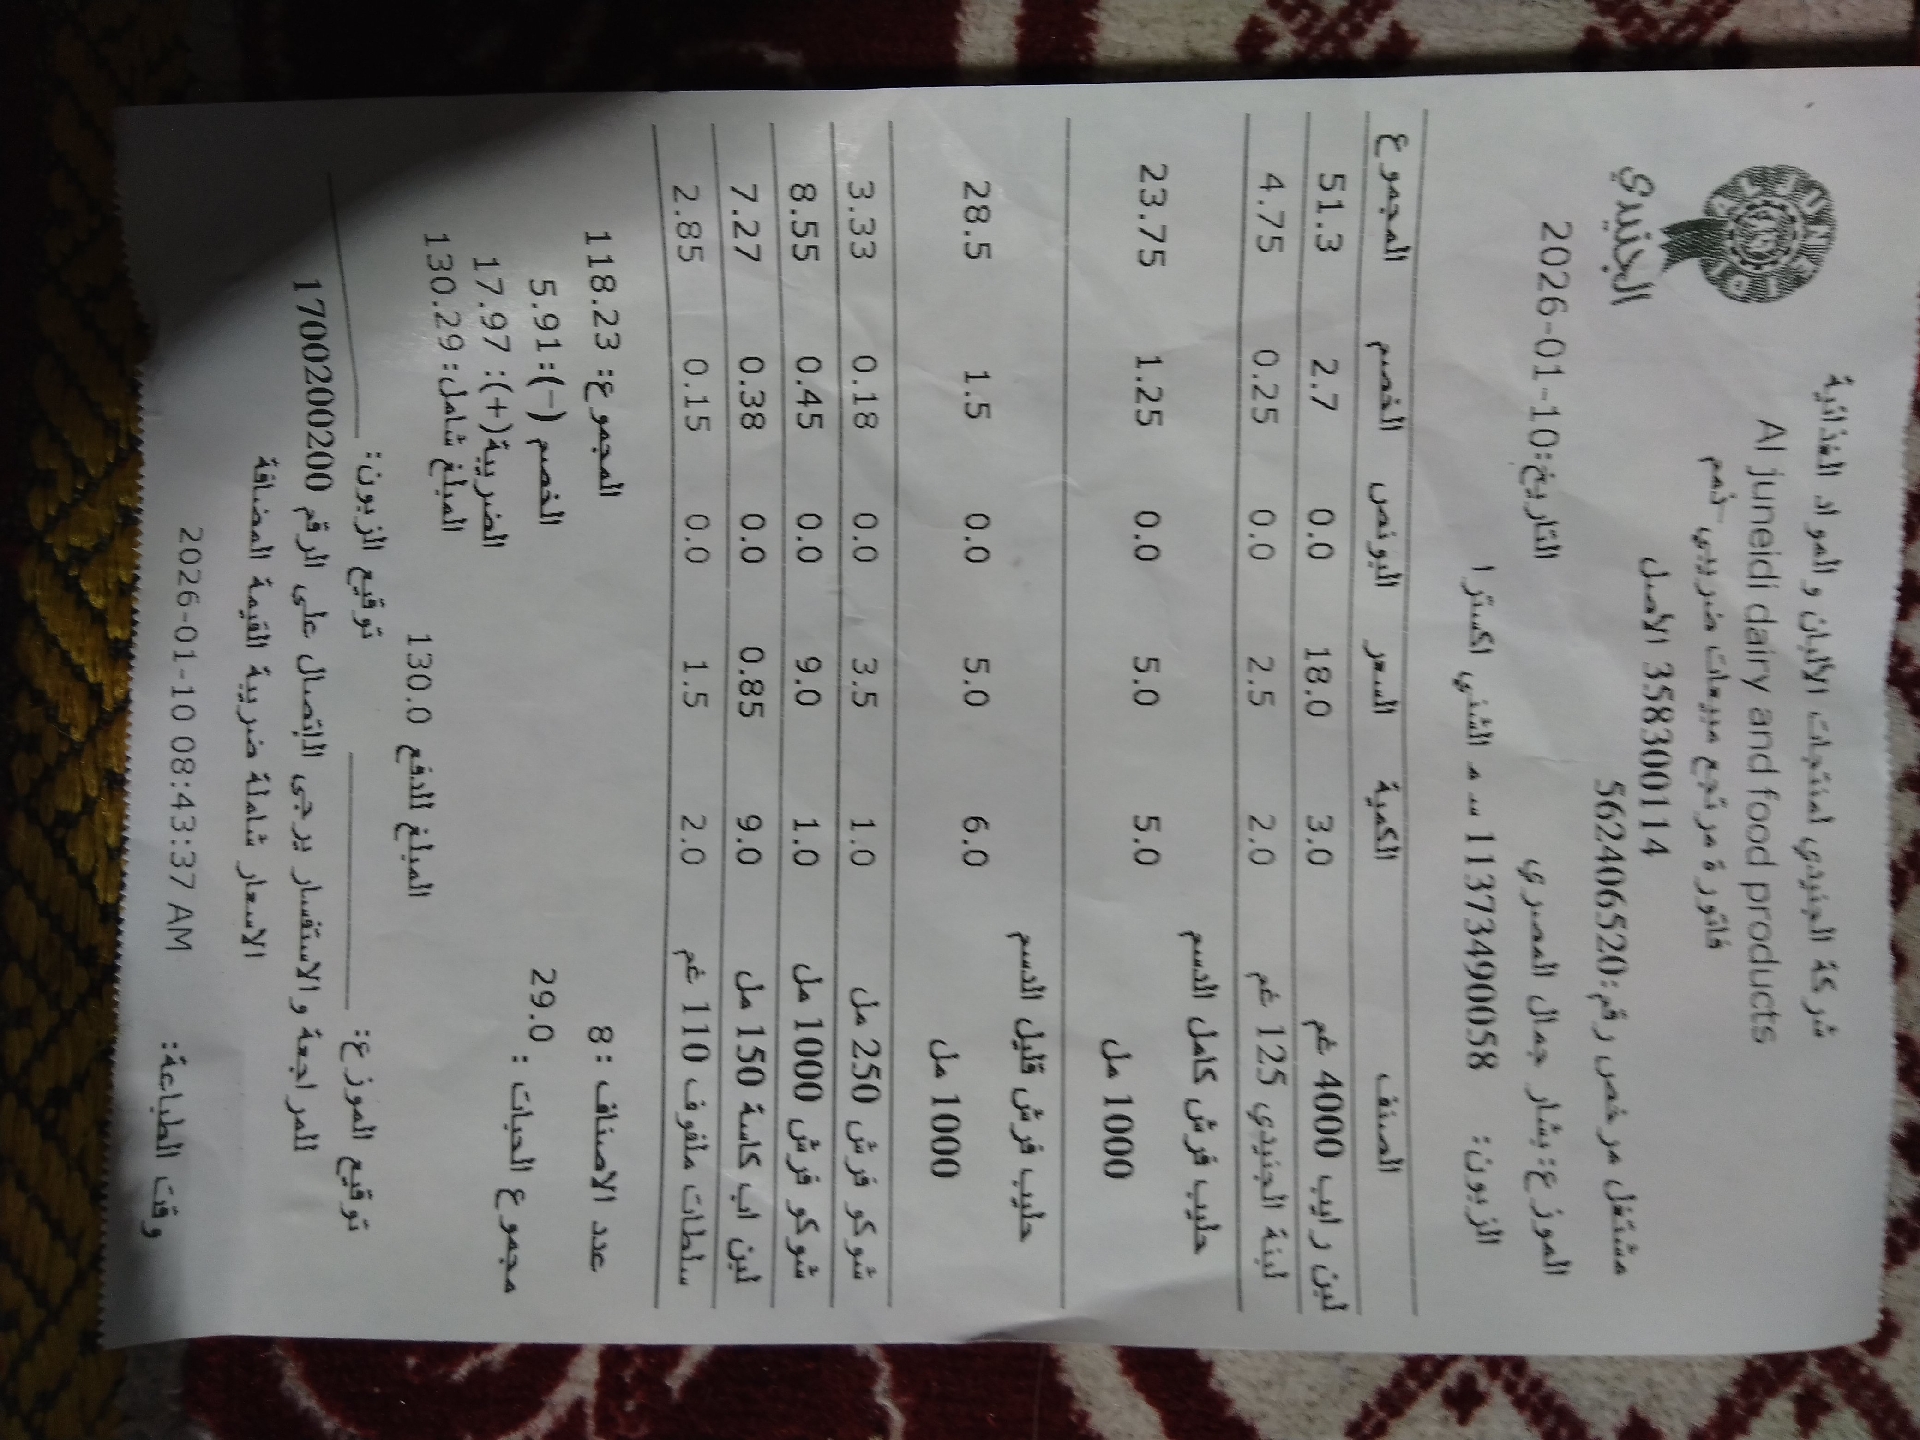 شركة الجنيدي لمنتجات الألبان والمواد الغذائية
Al juneidi dairy and food products
فاتورة مرتجع مبيعات ضريبي -ذمم
358300114 الاصل
الجنيدي
مشتغل مرخص رقم:562406520
الموزع:بشار جمال المصري التاريخ:10-01-2026
الزبون: 11373490058 س م الشني اكسترا
الصنف الكمية السعر البونص الخصم المجموع
لبن رايب 4000 غم 3.0 18.0 0.0 2.7 51.3
لبنة الجنيدي 125 غم 2.0 2.5 0.0 0.25 4.75
حليب فرش كامل الدسم
1000 مل 5.0 5.0 0.0 1.25 23.75
حليب فرش قليل الدسم
1000 مل 6.0 5.0 0.0 1.5 28.5
شوكو فرش 250 مل 1.0 3.5 0.0 0.18 3.33
شوكو فرش 1000 مل 1.0 9.0 0.0 0.45 8.55
لبن اب كاسة 150 مل 9.0 0.85 0.0 0.38 7.27
سلطات ملفوف 110 غم 2.0 1.5 0.0 0.15 2.85
عدد الاصناف :8 المجموع: 118.23
مجموع الحبات : 29.0 الخصم (-): 5.91
الضريبة(+): 17.97
المبلغ شامل: 130.29
المبلغ الدفع 130.0
توقيع الموزع: ____________ توقيع الزبون: ____________
للمراجعة والاستفسار يرجى الاتصال على الرقم 1700200200
الاسعار شاملة ضريبة القيمة المضافة
وقت الطباعة: 2026-01-10 08:43:37 AM